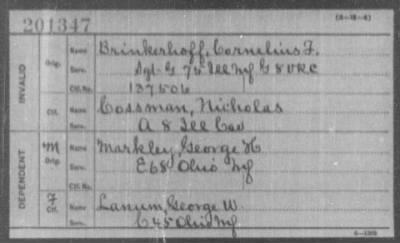 201347
(3-18-6)
INVALID
Orig. Name Brinkerhoff, Cornelius F.
Serv. Sgt. G 75 Ill Inf G 8 VRC
Ctf. No. 137506
Ctf. Name Cossman, Nicholas
Serv. A 8 Ill Cav
DEPENDENT
M Orig. Name Markley, George H.
Serv. E 68 Ohio Inf
Ctf. No.
F Ctf. Name Lanum, George W.
Serv. C 45 Ohio Inf